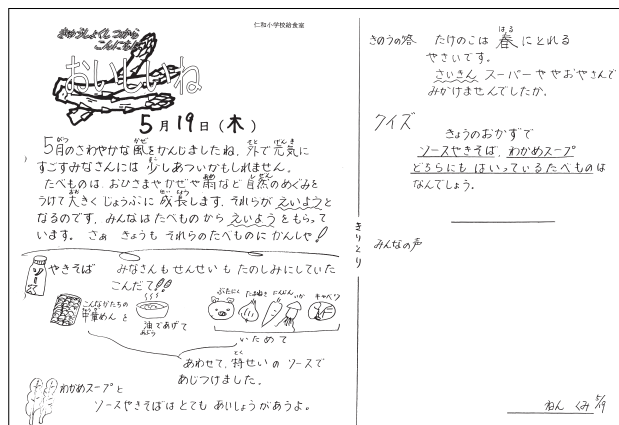 仁和小学校給食室
きゅうしょくしつから
こんにちは
おいしいね
5月19日(木)
5月のさわやかな風をかんじましたね。外で元気に
すごすみなさんには少しあついかもしれません。
たべものは、おひさまやかぜや雨など自然のめぐみを
うけて大きくじょうぶに成長します。それらがえいようと
なるのです。みんなはたべものからえいようをもらって
います。さぁ きょうも それらのたべものにかんしゃ!
ソース
やきそば みなさんもせんせいもたのしみにしていた
こんだて!!
こんなかたちの
中華めんを
油であげて
ぶたにく たまねぎ にんじん いか キャベツ
いためて
あわせて、特せいのソースで
あじつけました。
わかめスープと
ソースやきそばはとてもあいしょうがあうよ。
きりとり
きのうの答 たけのこは春にとれる
やさいです。
さいきんスーパーややおやさんで
みかけませんでしたか。
クイズ
きょうのおかずで
ソースやきそば、わかめスープ
どちらにもはいっているたべものは
なんでしょう。
みんなの声
ねん くみ 5/19